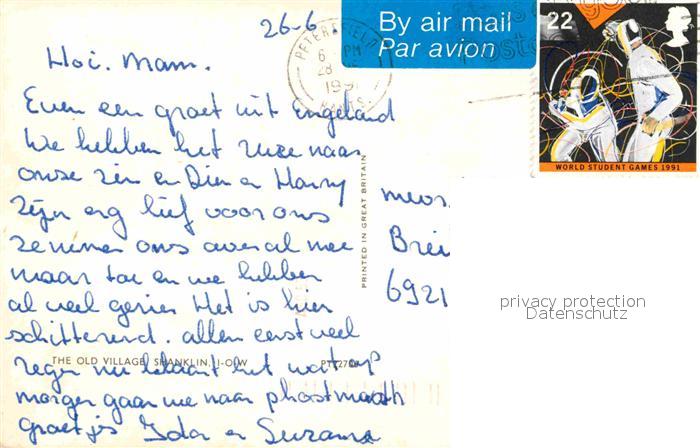 26-6
By air mail
Par avion
PETERSFIELD
6 PM
28
199
HANTS
22
WORLD STUDENT GAMES 1991
Hoi. Mam.
Even een groet uit Engeland
We hebben het zeer naar
onze zin en Dien en Harry
zijn erg lief voor ons
ze nemen ons overal mee
naar toe en we hebben
al veel gezien Het is hier
schitterend. allen eerst veel
regen nu klaart het wat op
morgen gaan we naar
groetjes Ida en Suzanne
THE OLD VILLAGE, SHANKLIN, I-O-W
PRINTED IN GREAT BRITAIN
mevr.
Brei
6921
privacy protection
Datenschutz